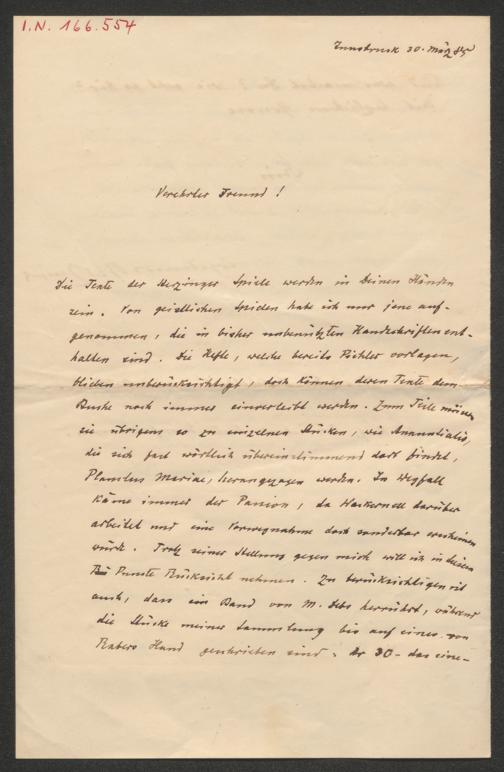 I.N. 166.554
Innsbruck 30. März 85
Verehrter Freund!
Die Texte der Sterzinger Spiele werden in Deinen Händen
sein. Von geistlichen Spielen habe ich nur jene auf-
genommen, die in bisher unbenützten Handschriften ent-
halten sind. Die Hefte, welche bereits Pichler vorlagen,
blieben unberücksichtigt, doch können deren Texte dem
Buche noch immer einverleibt werden. Zum Teile müssen
sie übrigens so zu einzelnen Stücken, wie Annuntiatio,
die sich fast wörtlich übereinstimmend dort findet,
Planctus Mariae, herangezogen werden. In Wegfall
käme immer der Passion, da Wackernell darüber
arbeitet und eine Vorwegnahme doch sonderbar erscheinen
würde. Trotz seiner Stellung gegen mich will ich in diesem
Punkte Rücksicht nehmen. Zu berücksichtigen ist
auch, dass ein Band von M. herrührt, während
die Stücke meiner Sammlung bis auf eines von
Rabers Hand geschrieben sind. Nr 30 - das eine-